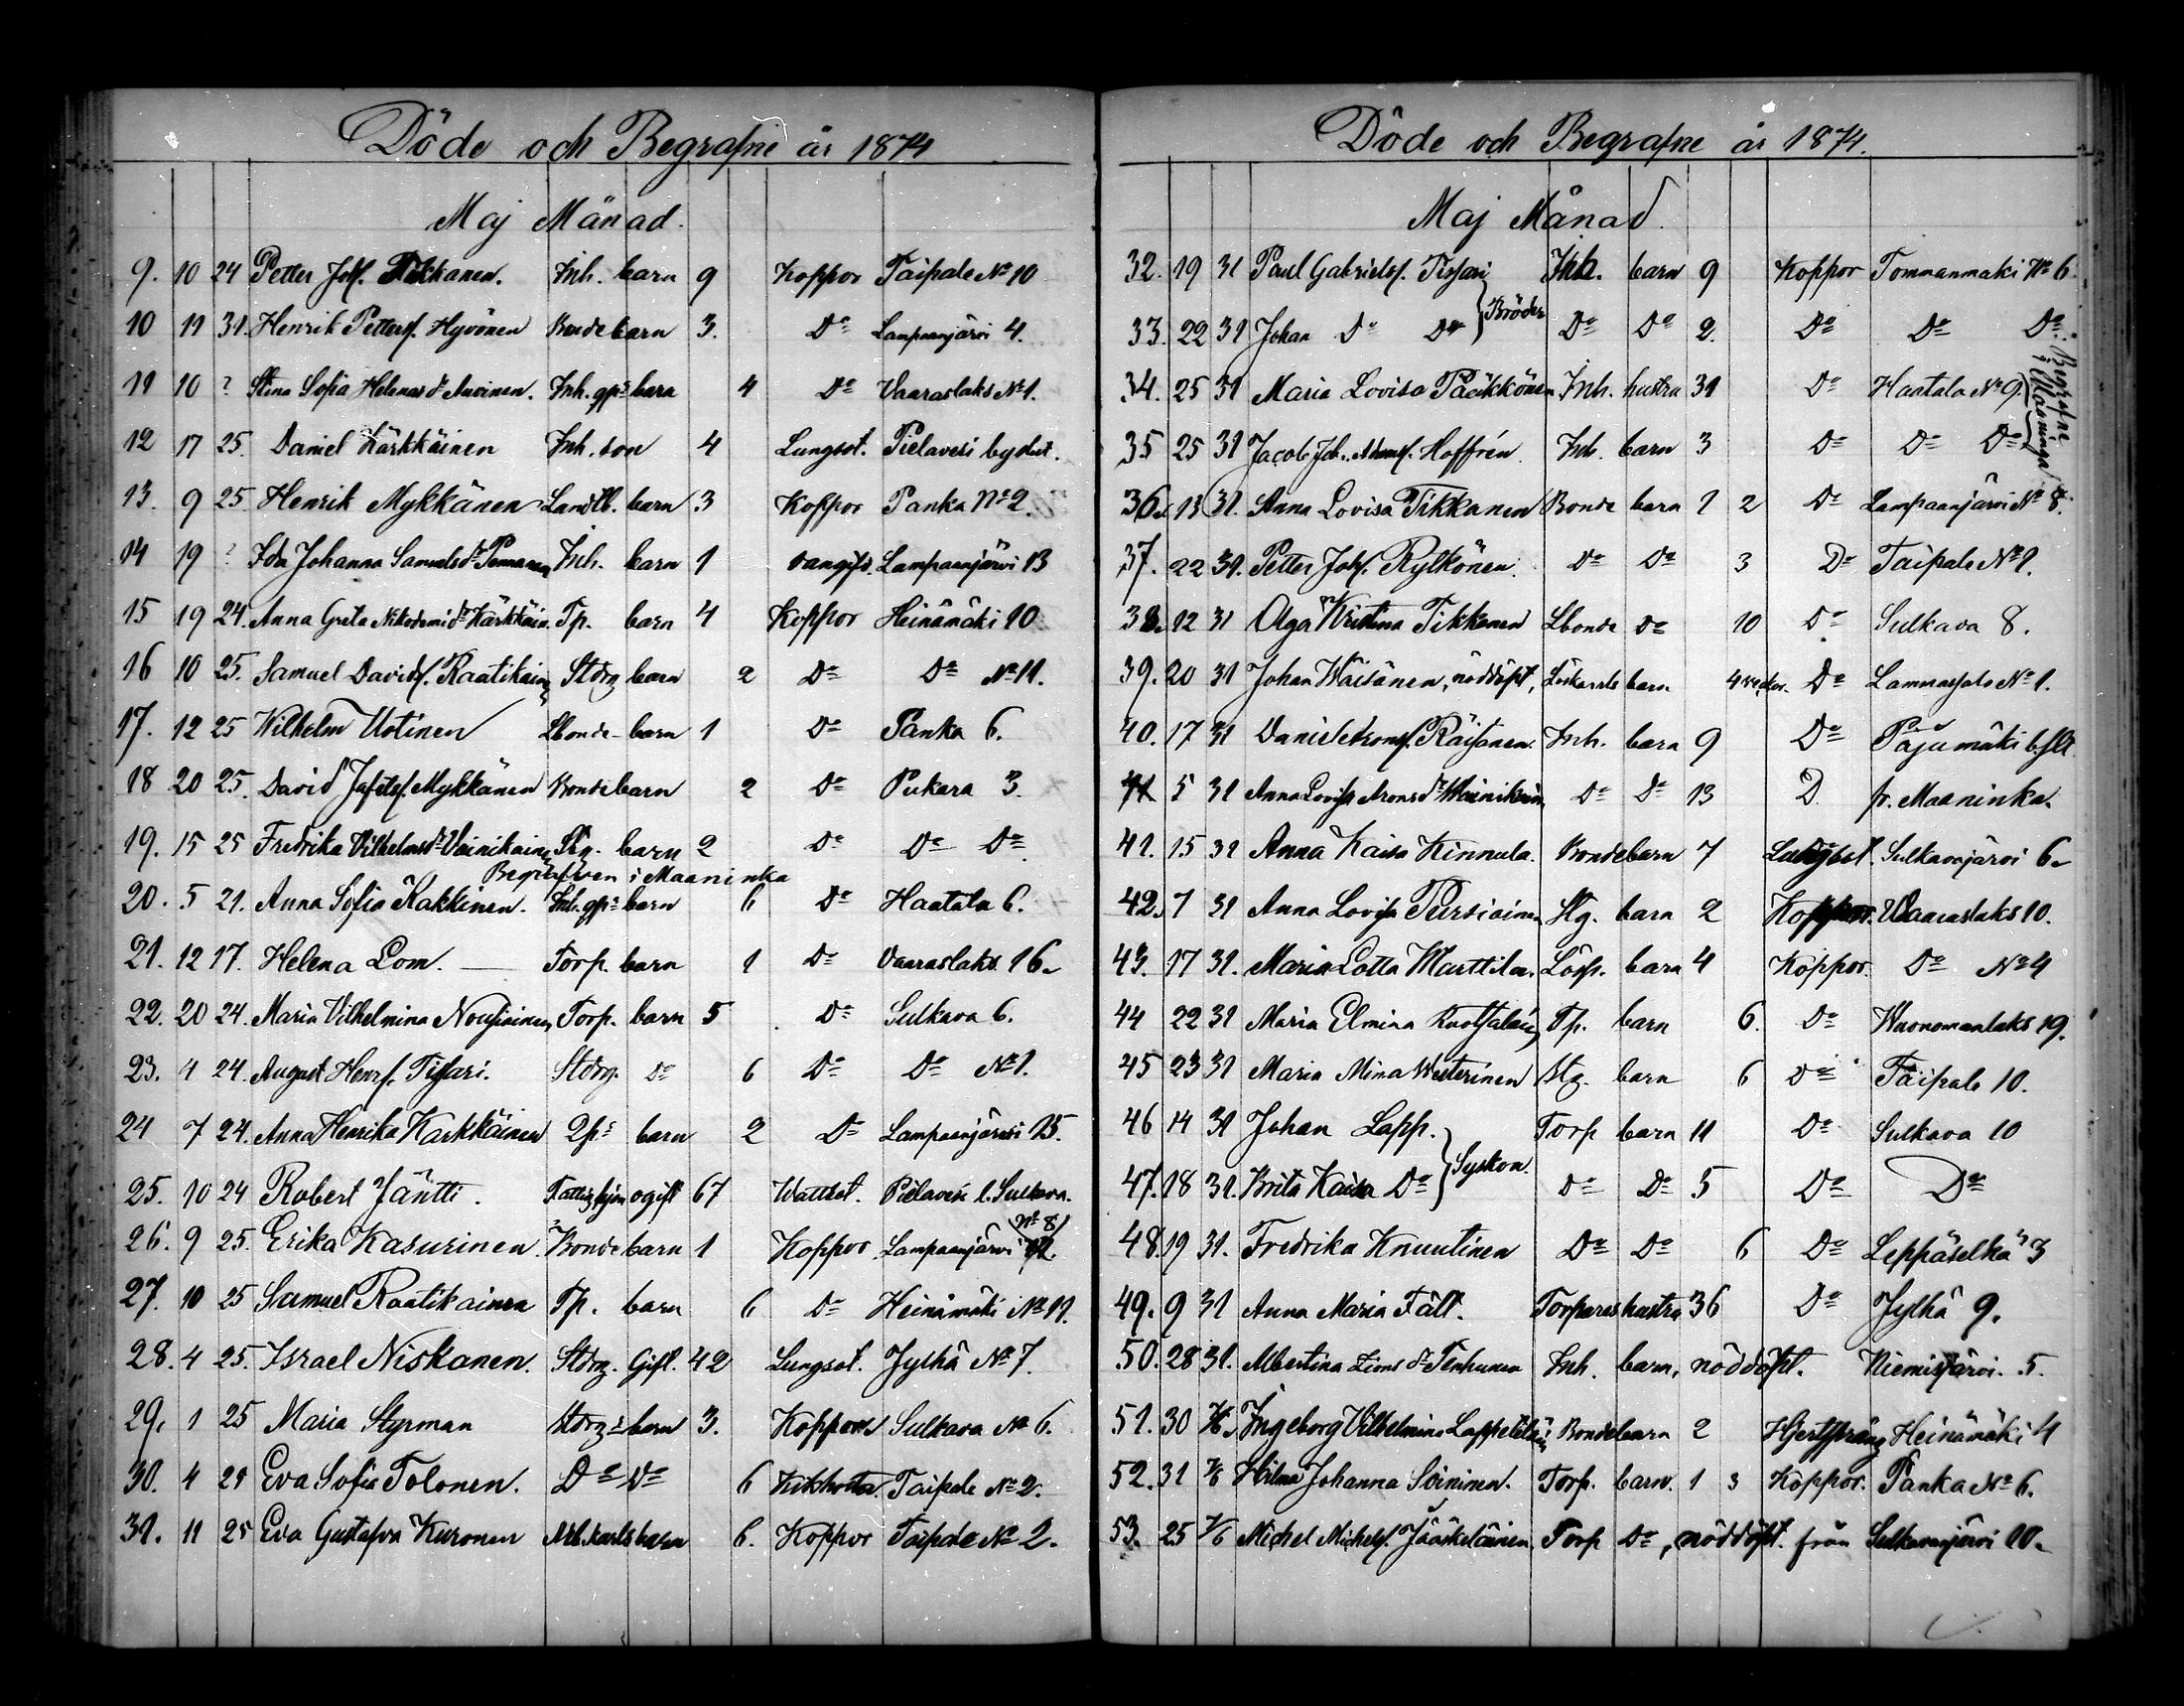 Döde och Begrafne år 1874
Maj Månad.
9. 10 24 Petter Johs. Tikkanen. Inh. barn 9 Koppor Taipale No 10
10 11 31. Henrik Petters. Hyvönen Bonde barn 3. Do Lampaanjärvi 4.
11 10 ? Stina Sofia Helenas dr Auvinen. Inh. gps barn 4 Do Vaaraslaks No 1.
12 17 25. Daniel Kärkkäinen Inh. son 4 Lungsot. Pielavesi byslut.
13. 9 25 Henrik Mykkänen Landb. barn 3 Koppor Panka No 2.
14 19 ? Ida Johanna Samuelsdr Inh. barn 1 Lampaanjärvi 13
15 19 24. Anna Greta Nikodemi dr Kärkkäin. Tp. barn 4 Koppor Heinämäki 10
16 10 25. Samuel Davids. Raatikain Stdrg barn 2 Do Do No 11.
17. 12 25 Wilhelm Utinen Lbonde barn 1 Do Panka 6.
18 20 25. David Jafets. Mykkänen Bonde barn 2 Do Pukara 3.
19. 15 25 Fredrika Vilhelmsdr Väinikain Stg. barn 2 Do Do Do
Begrafven i Maaninka
20. 5 21. Anna Sofia Kakkinen. Inh. gps barn 6 Do Haatala 6.
21. 12 17. Helena Lom. Torp. barn 1 Do Vaaraslaks 16.
22. 20 24. Maria Vilhelmina Nousiainen Torp. barn 5 Do Sulkava 6.
23. 4 24. August Henrs. Tissari. Stdrg. Do 6 Do Do No 1.
24 7 24. Anna Henrika Karkkäinen barn 2 Do Lampaanjärvi 15.
25. 10 24 Robert Jäntti. Fattighjon ogift 67 Wattsot. Pielavesi l. Sulkava.
26. 9 25. Erika Kasurinen. Bonde barn 1 Koppor Lampaanjärvi No 8
27. 10 25 Samuel Raatikainen Tp. barn 6 Do Heinämäki No 11.
28. 4 25. Israel Niskanen. Stdrg. Gift. 42 Lungsot. Jylhä No 7.
29. 1 25 Maria Styrman Stdrgs barn 3. Koppor Sulkava No 6.
30. 4 25 Eva Sofia Tolonen. Do Do 6 Kikhosta Taipale No 2.
31. 11 25 Eva Gustafva Kuronen Arb. karls barn 6. Koppor Taipale No 2.
Döde och Begrafne år 1874.
Maj Månad.
32. 19 31 Paul Gabriels. Tissari Inh. barn 9 Koppor Tommanmäki No 6.
Bröder
33. 22 31 Johan Do Do Do Do 2. Do Do Do
34. 25 31 Maria Lovisa Pääkkönen Inh. hustru 31 Do Haatala No 9.
Begrafne i Maaninga
35 25 31 Jacob Joh. Adams. Hoffrén Inh. barn 3 Do Do Do
36. 13 31. Anna Lovisa Tikkanen Bonde barn 1 2 Do Lampaanjärvi No 8.
37. 22 31. Petter Johs. Rylkönen. Do Do 3 Do Taipale No 1.
38. 12 31 Olga Kristina Tikkanen Lbonde Do 10 Do Sulkava 8.
39. 20 31 Johan Wäisänen, nöddöpt, Löskarls barn 4 veckor. Do Lammassalo No 1.
40. 17 31 Daniel Arons. Räisänen. Inh. barn 9 Do Pajumäki bslt.
41 5 31 Anna Lovisa Aronsdr Wäinikäin Do Do 13 D. fr. Maaninka.
41. 15 31 Anna Kaisa Kinnula. Bondebarn 7 Lungsot. Sulkavanjärvi 6.
42. 7 31 Anna Lovisa Pursiainen Stg. barn 2 Koppor. Waaraslaks 10.
43. 17 31. Maria Lotta Marttila. Lösp. barn 4 Koppor. Do No 4
44 22 31 Maria Elmina Tp. barn 6. Do Wuonomanlaks 19.
45 23 31 Maria Mina Westerinen Stg. barn 6 Do Taipale 10.
46 14 31 Johan Lapp. Torp barn 11 Do Sulkava 10
Syskon.
47. 18 31. Brita Kaisa Do Do Do 5 Do Do
48. 19 31. Fredrika Knuutinen Do Do 6 Do Leppäselkä 3
49. 9 31 Anna Maria Fält. Torpares hustru 36 Do Jylhä 9.
50. 28 31. Albertina Zions dr Tenhunen Inh. barn, nöddöpt. Niemisjärvi. 5.
51. 30 1/6 Ingeborg Vilhelmina Lappeteläin Bondebarn 2 Hjertsprång Heinämäki 4
52. 31 1/6 Hilma Johanna Soininen. Torp. barn. 1 3 Koppor. Panka No 6.
53. 25 1/6 Michel Michels. Jääskeläinen Torp Do, nöddöpt. från Sulkavanjärvi 10.